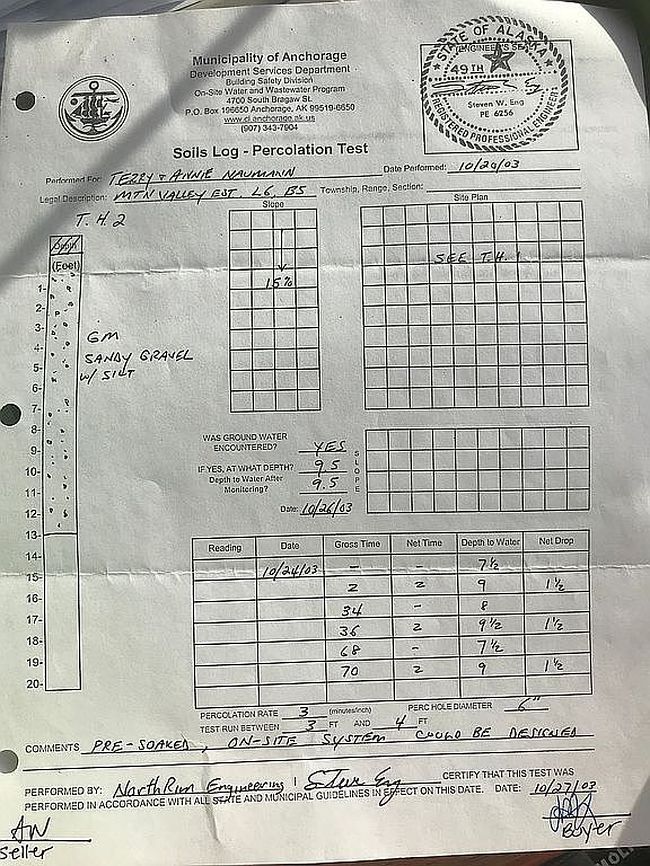 Municipality of Anchorage
Development Services Department
Building Safety Division
On-Site Water and Wastewater Program
4700 South Bragaw St.
P.O. Box 196650 Anchorage, AK 99519-6650
www.ci.anchorage.ak.us
(907) 343-7904
STATE OF ALASKA
ENGINEER'S SEAL
49TH
Steven W. Eng
PE 6256
REGISTERED PROFESSIONAL ENGINEER
Soils Log - Percolation Test
Performed For: TERRY & ANNIE NAUMANN Date Performed: 10/20/03
Legal Description: MTN VALLEY EST. L6, B5 Township, Range, Section:
T.H. 2
Slope
Site Plan
Depth
(Feet)
15%
SEE T.H. 1
1-
2-
3-
4-
5-
6-
7-
8-
9-
10-
11-
12-
13-
14-
15-
16-
17-
18-
19-
20-
GM
SANDY GRAVEL
W/ SILT
WAS GROUND WATER
ENCOUNTERED? YES
IF YES, AT WHAT DEPTH? 9.5
Depth to Water After
Monitoring? 9.5
Date: 10/26/03
SLOPE
Reading Date Gross Time Net Time Depth to Water Net Drop
10/24/03 - - 7 1/2
2 2 9 1 1/2
34 - 8
36 2 9 1/2 1 1/2
68 - 7 1/2
70 2 9 1 1/2
PERCOLATION RATE 3 (minutes/inch) PERC HOLE DIAMETER 6"
TEST RUN BETWEEN 3 FT AND 4 FT
COMMENTS PRE-SOAKED, ON-SITE SYSTEM COULD BE DESIGNED
PERFORMED BY: NorthRim Engineering I Steve Eng CERTIFY THAT THIS TEST WAS
PERFORMED IN ACCORDANCE WITH ALL STATE AND MUNICIPAL GUIDELINES IN EFFECT ON THIS DATE. DATE: 10/27/03
AW
Seller
Buyer